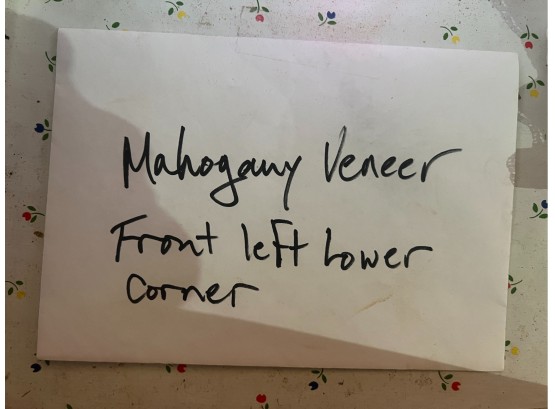 Mahogany Veneer
Front left Lower
corner